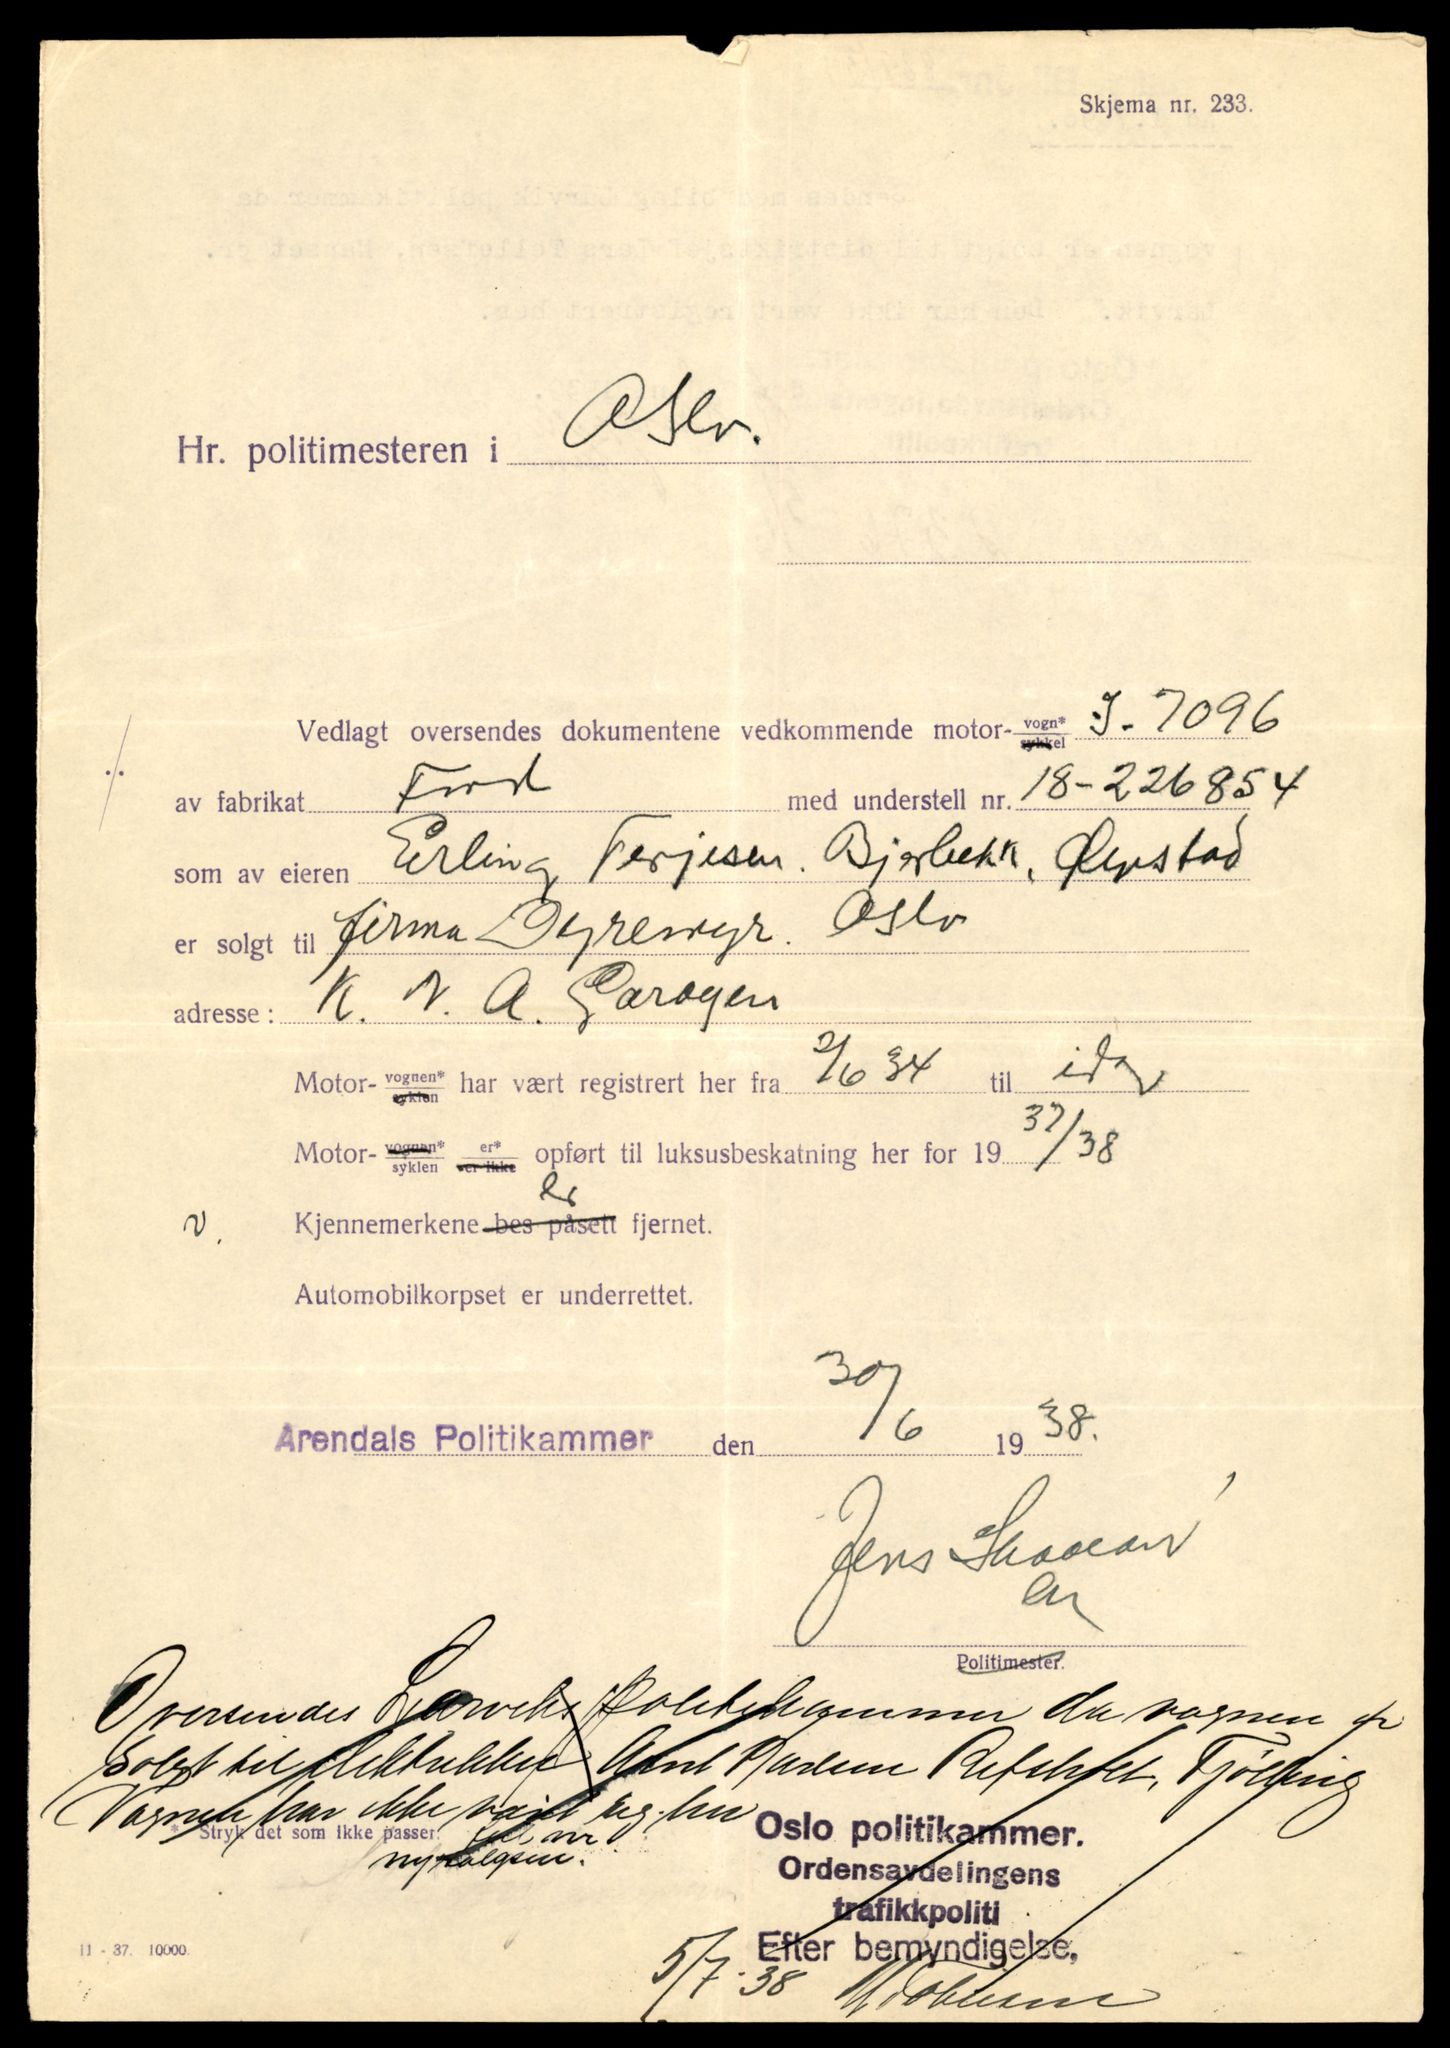 Skjema nr. 233.
Hr. politimesteren i Oslo.
Vedlagt oversendes dokumentene vedkommende motor- vogn* sykkel I-7096
av fabrikat Ford med understell nr. 18-226854
som av eieren Erling Terjesen. Bjorbekk, Øyestad
er solgt til firma Dyremyr. Oslo
adresse: K. N. A. Garagen
Motor- vognen* syklen har vært registrert her fra 2/6 34 til idag
Motor- vognen* syklen er* er ikke opført til luksusbeskatning her for 19 37/38
er
v. Kjennemerkene bes påsett fjernet.
Automobilkorpset er underrettet.
Arendals Politikammer den 30/6 1938.
Jens
Politimester.
Oversendes Larviks Politikammer da vognen er
Solgt til Tjølling
Vognen har ikke vært reg. her
* Stryk det som ikke passer.
Oslo politikammer.
Ordensavdelingens
trafikkpoliti
Efter bemyndigelse,
5/7-38
11 - 37. 10000.